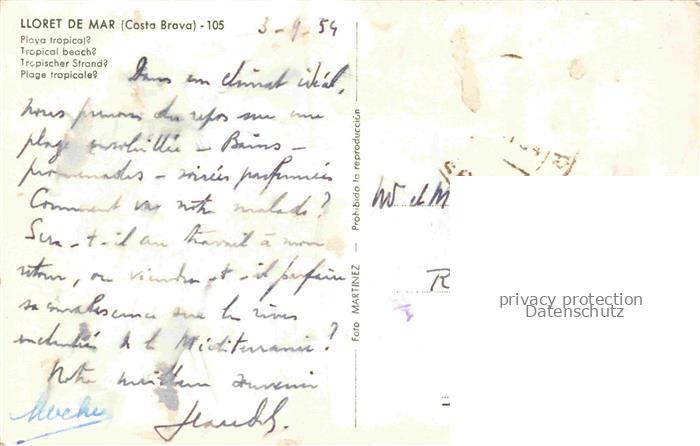 LLORET DE MAR (Costa Brava) - 105
Playa tropical?
Tropical beach?
Tropischer Strand?
Plage tropicale?
3-9.54
Dans un climat idéal,
nous prenons du repos sur une
plage ensoleillée - Bains -
promenades - soirées parfumées
Comment va notre malade?
Sera-t-il au travail à mon
retour, ou viendra-t-il parfaire
sa convalescence sur les rives
enchantées de la Méditerranée?
Notre meilleur souvenir
Foto MARTINEZ - Prohibida la reproducción
Mr et M
R
privacy protection
Datenschutz